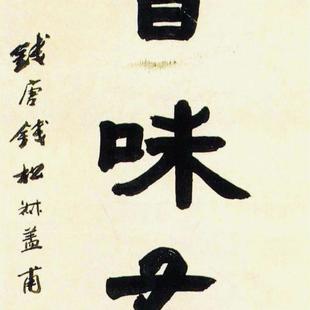 味
錢唐錢松叔蓋甫